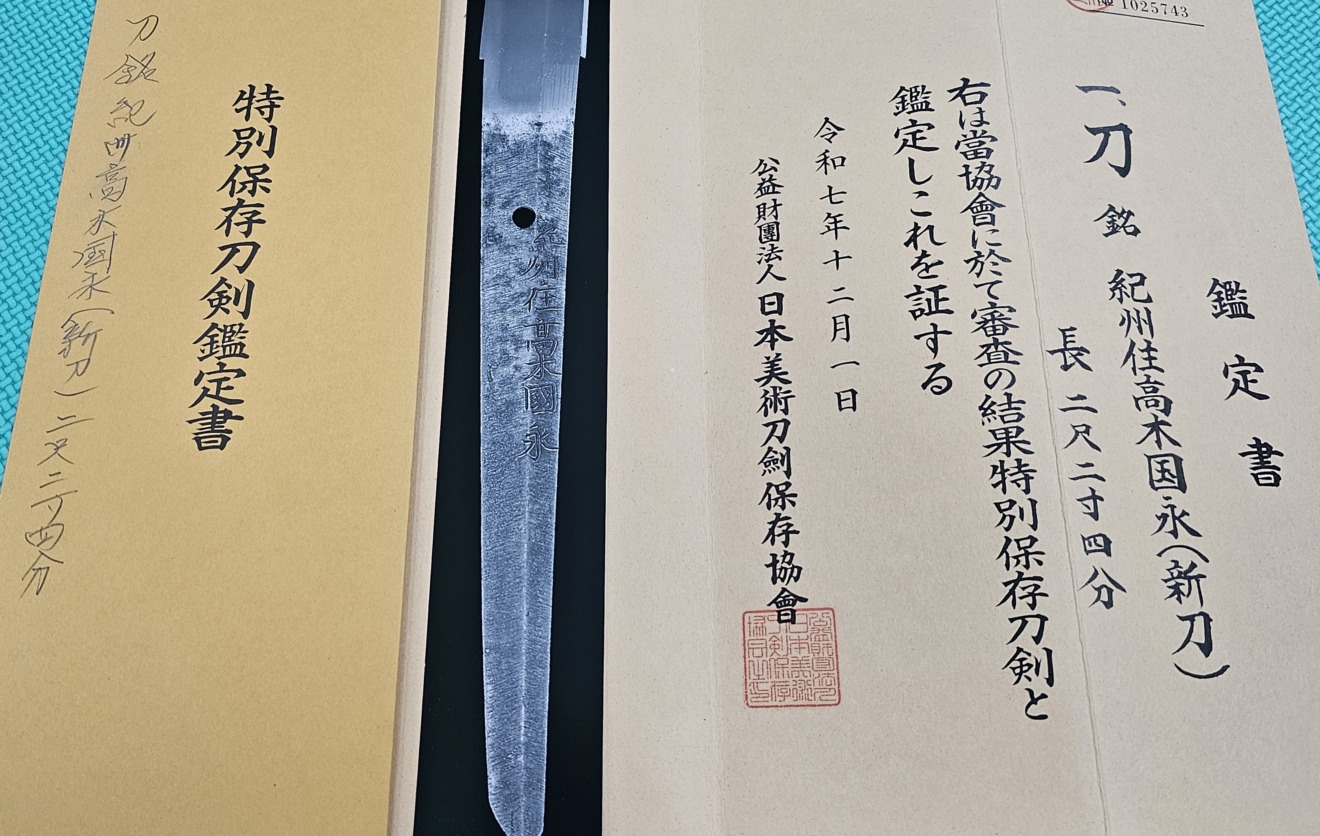 № 1025743
鑑定書
一、刀 銘 紀州住高木国永(新刀)
長 二尺二寸四分
右は當協會に於て審査の結果特別保存刀剣と
鑑定しこれを証する
令和七年十二月一日
公益財團法人 日本美術刀劍保存協會
紀州住高木國永
特別保存刀剣鑑定書
刀 銘 紀州高木国永(新刀)二尺二寸四分